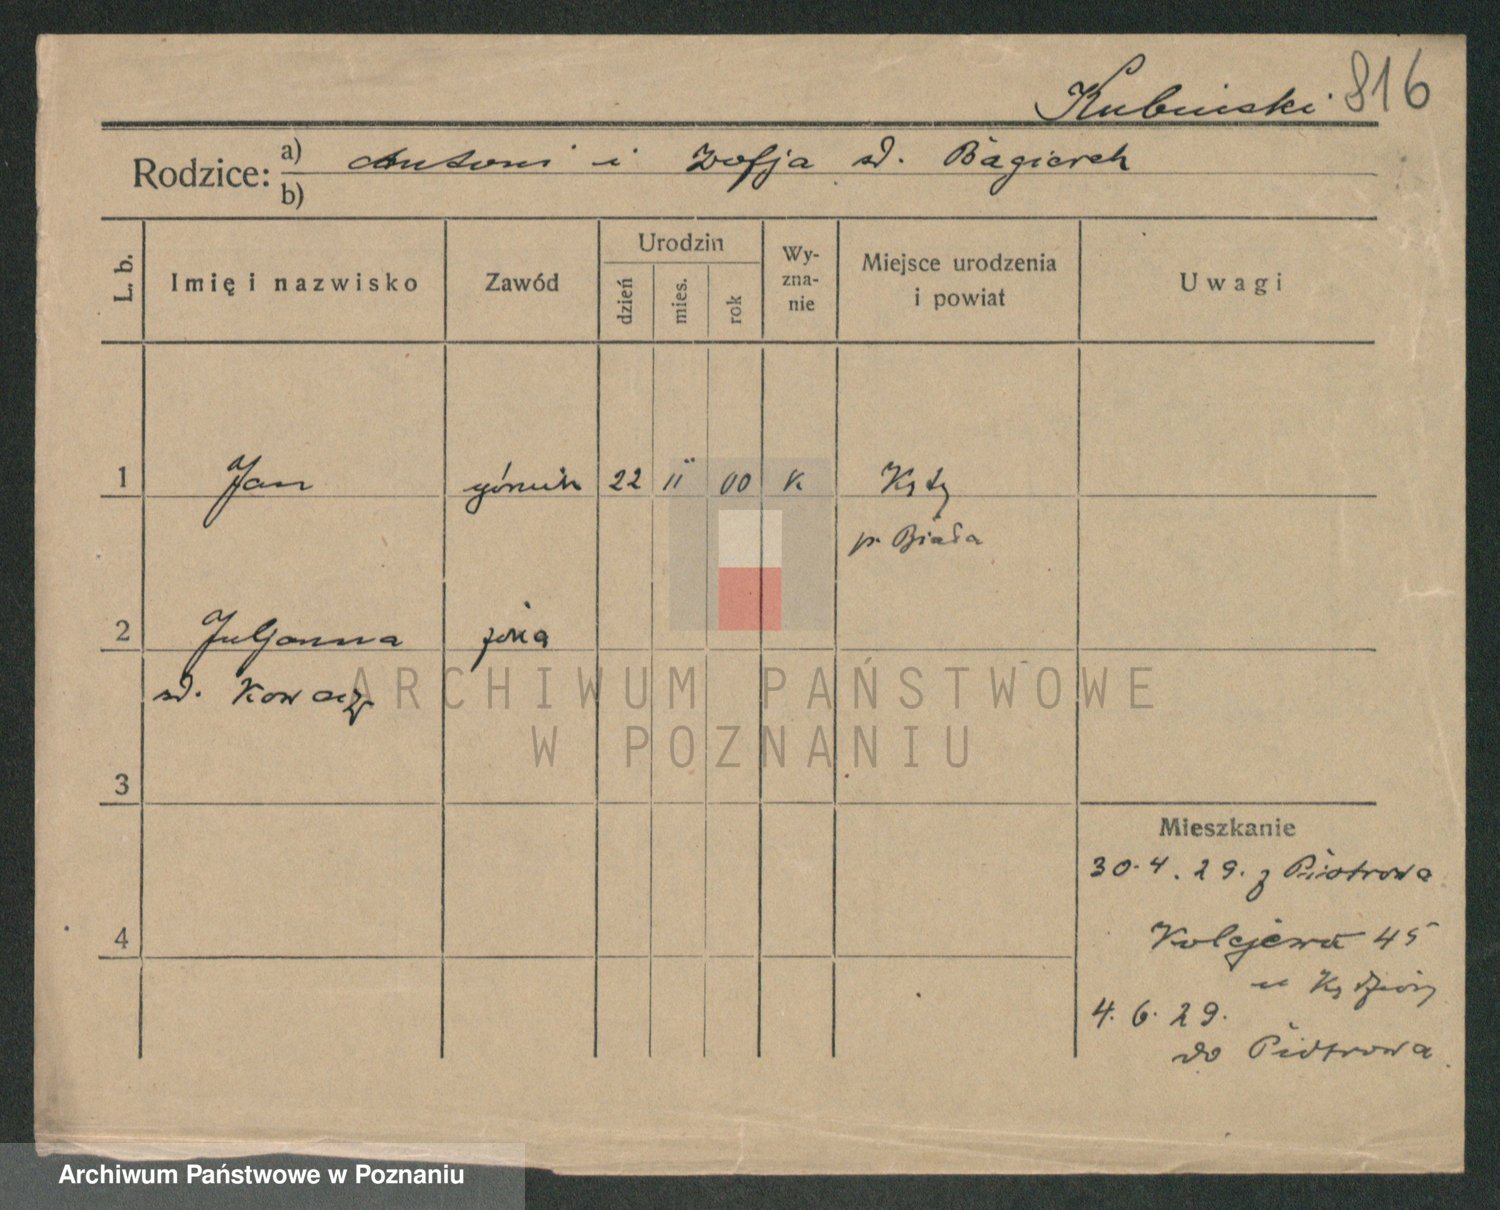 Kubinski 816
Rodzice: a) Antoni i Zofja zd. Bagierek
b)
L. b. Imię i nazwisko Zawód Urodzin dzień mies. rok Wy-zna-nie Miejsce urodzenia i powiat Uwagi
1 Jan górnik 22 II 00 k Kęty
p. Biała
2 Juljanna żona
zd. Kowacz
ARCHIWUM PAŃSTWOWE
W POZNANIU
3
Mieszkanie
30. 4. 29. z Piotrowa
4 Kolejowa 45
u
4. 6. 29.
do Piotrowa
Archiwum Państwowe w Poznaniu